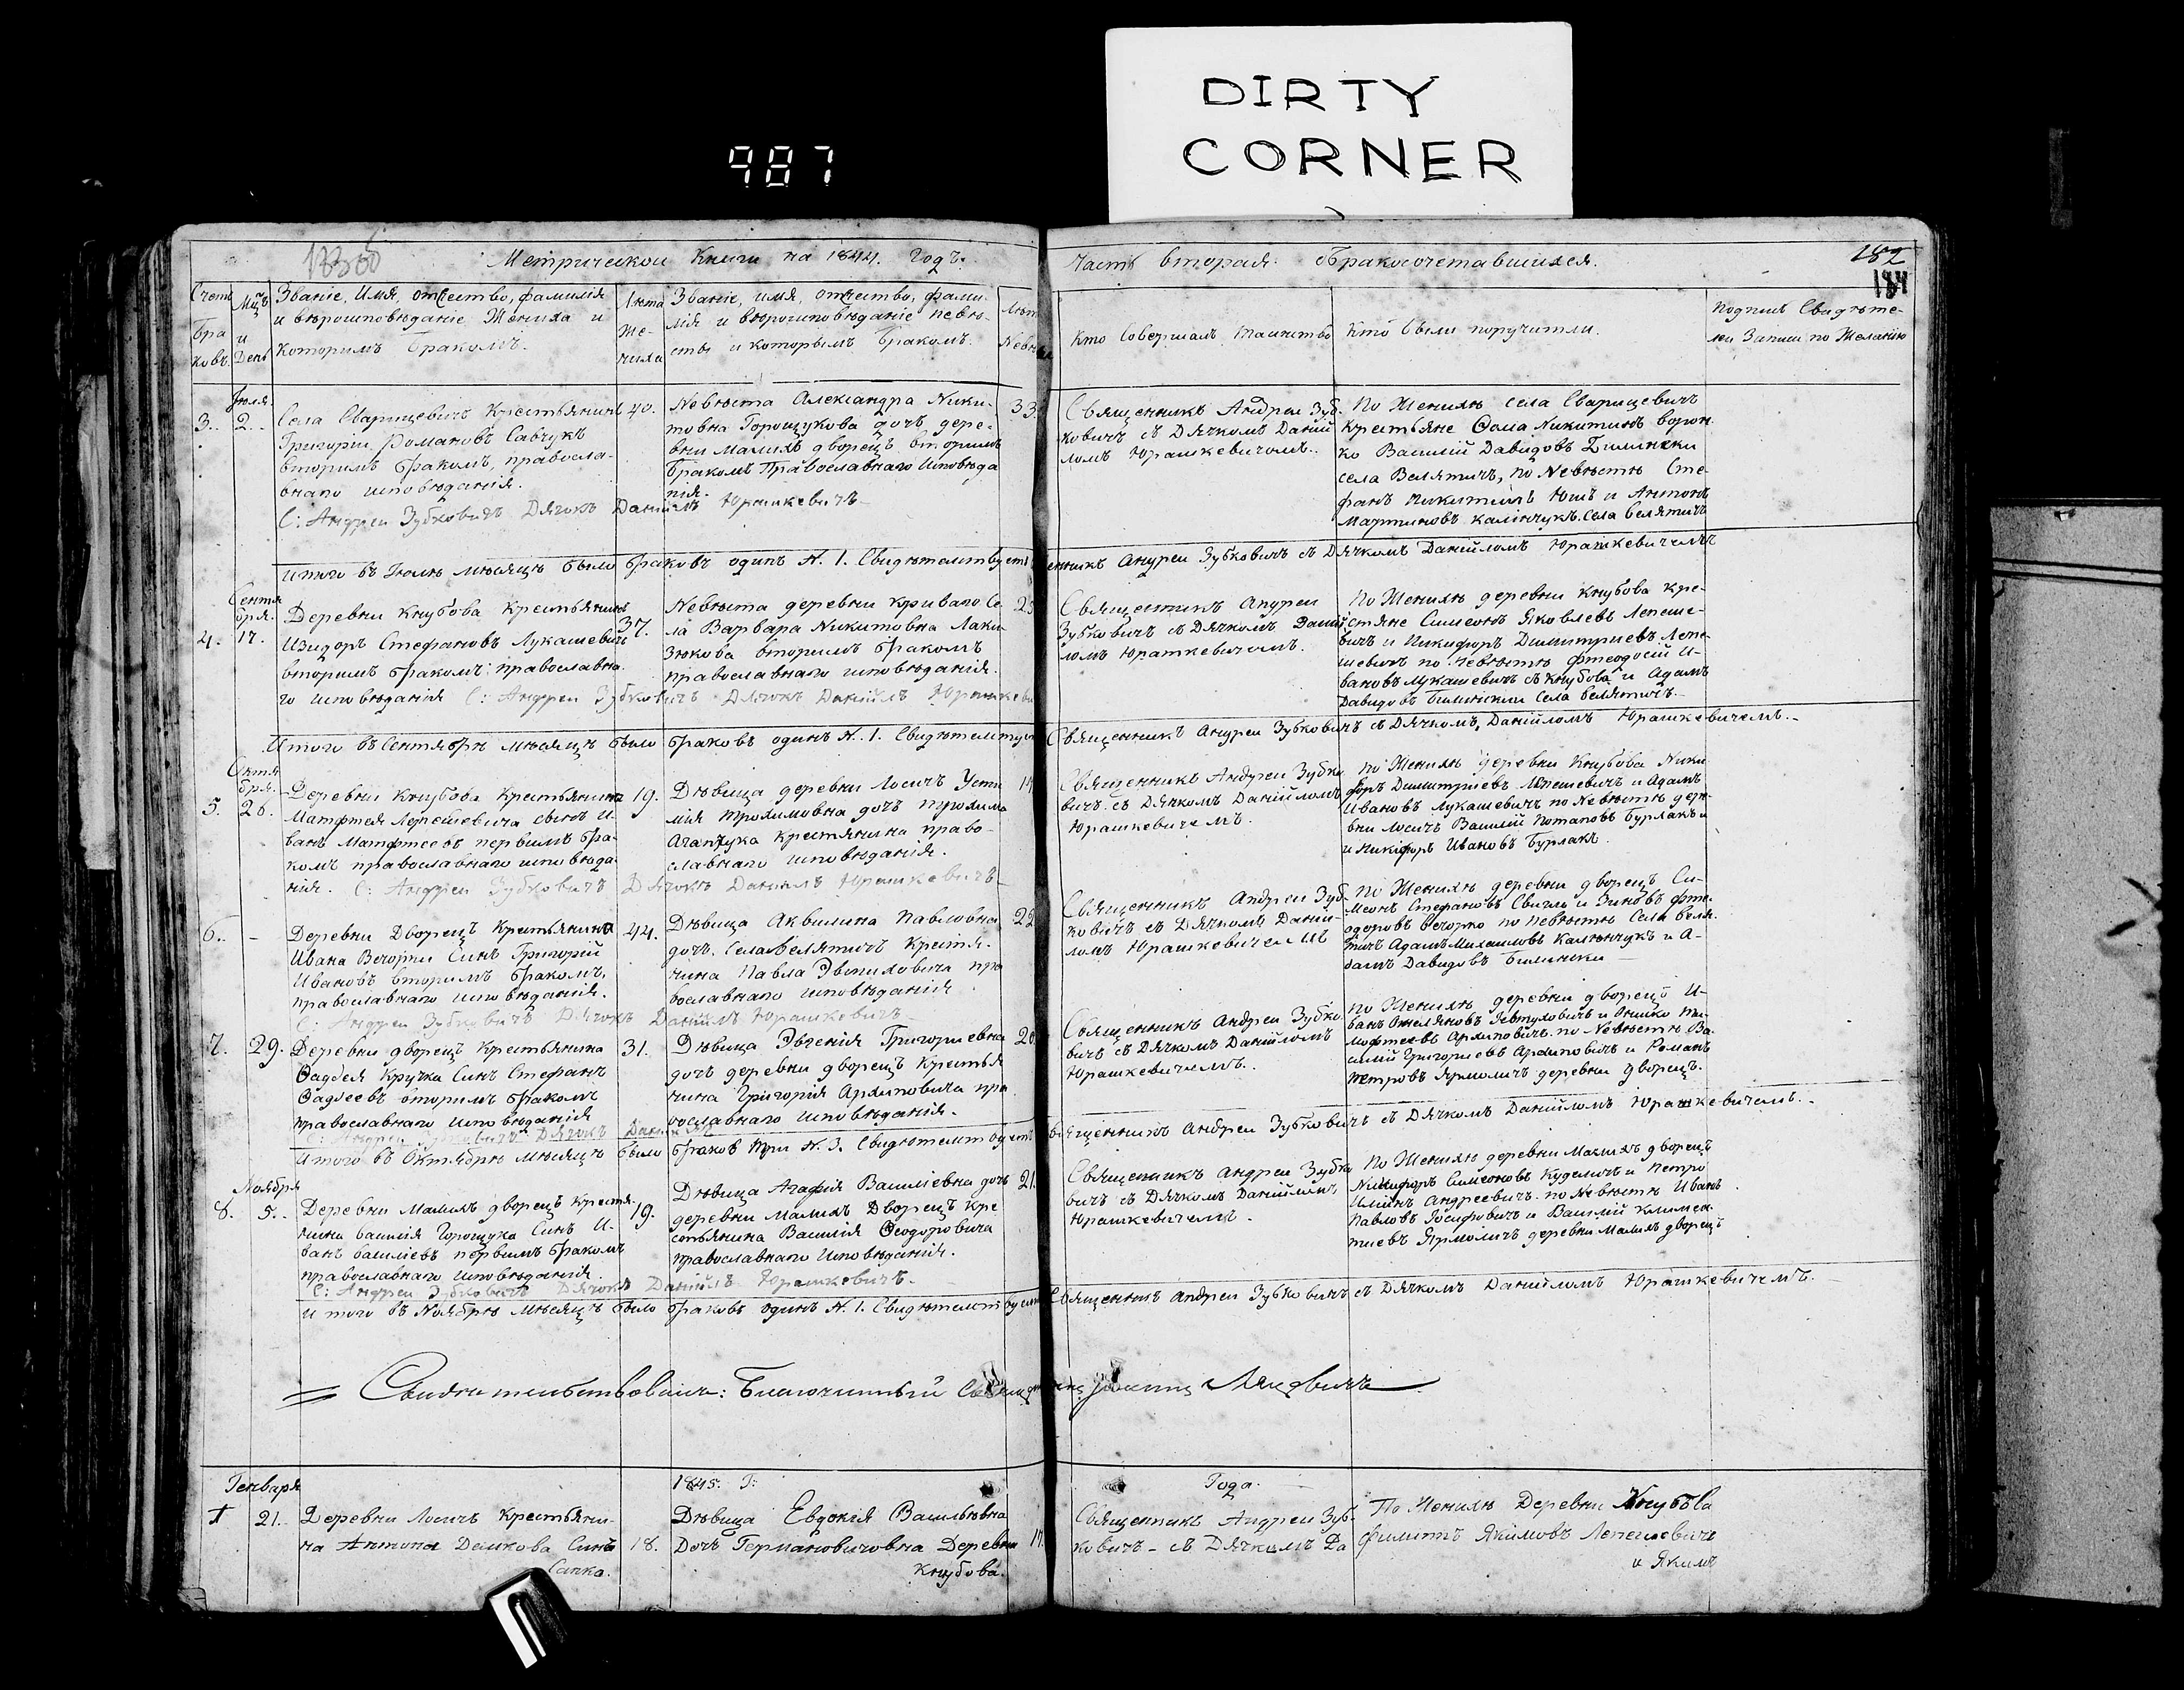 DIRTY
CORNER
987
Метрической Книги на 1844. Годъ.
Часть вторая. Бракосочетавшихся.
182
Счетъ Бра ковъ.
Мцъ и День
Званіе, Имя, отчество, фамилія
и вѣроисповѣданіе Жениха и
которимъ Бракомъ.
Лѣта Же- ниха
Званіе, имя, отчество, фами-
лія и вѣроисповѣданіе невѣ-
сты и которымъ Бракомъ.
Кто совершалъ Таинство
Кто были поручители.
Подпись Свидѣте-
лей Записи по Желанію
Іюля.
3. 2.
Села Сварицевичъ Крестьянинъ
Григорій Романовъ Савчукъ
вторимъ бракомъ, правосла-
внаго исповѣданія.
40.
Невѣста Александра Ники-
товна Горощукова дочь дере-
вни Малихъ дворецъ вторимъ
Бракомъ Православнаго исповѣда
нія.
33.
Священникъ Андрей Зуб-
ковичъ съ Дячкомъ Даній
ломъ Юрашкевичомъ.
По Женихѣ села Сварицевичъ
Крестьяне Ѳома Никитинъ ворон
ко Василій Давидовъ Билински
села Велятичъ, по Невѣстѣ Сте-
фанъ Никитинъ Юшъ и Антонъ
Мартиновъ Калінчукъ села Велятичъ
С: Андрей Зубковичъ Дячокъ Даніилъ Юрашкевичъ
Итого въ Іюлѣ мѣсяцѣ было браковъ одинъ N. 1. Свидѣтелствуетъ
Священникъ Андрей Зубковичъ съ Дячкомъ Даніиломъ Юрашкевичемъ
Сентя
бря.
4. 17.
Деревни Кнубова Крестьянинъ
Изидоръ Стефановъ Лукашевичъ
вторимъ бракомъ православна
го исповѣданія
37.
Невѣста деревни Криваго Се
ла Варвара Никитовна Лаки-
зюкова вторимъ бракомъ
православнаго исповѣданія.
Священникъ Андрей
Зубковичъ съ Дячкомъ Даній
ломъ Юрашкевичемъ.
По Женихѣ деревни Кнубова Кре-
стяне Симеонъ Яковлевъ Лепеше-
вичъ и Никифоръ Димитриевъ Лепе-
шевичъ по Невѣстѣ Фтеодосій И-
вановъ Лукашевичъ съ Кнубова и Адамъ
Давидовъ Билински села Велятичъ
С: Андрей Зубковичъ Дячокъ Даніилъ Юрашкеви
Итого въ Сентябрѣ мѣсяцѣ было браковъ одинъ N. 1.
Священникъ Андрей Зубковичъ съ Дячкомъ Даніиломъ Юрашкевичемъ.
Октя
бря.
5. 26.
Деревни Кнубова Крестьянина
Матфтея Лепешевича синъ И-
ванъ Матфтеевъ первимъ бра-
комъ православнаго исповѣда
нія.
19.
Дѣвица деревни Лосичъ Усти
мія Трохимовна дочъ Трохима
Агапчука Крестянина право-
славнаго исповѣданія.
Священникъ Андрей Зубко
вичъ съ Дячкомъ Даніиломъ
Юрашкевичемъ.
По Женихѣ деревни Кнубова Ники
форъ Димитриевъ Лепешевичъ и Адамъ
Ивановъ Лукашевичъ по Невѣстѣ дере-
вни Лосичъ Василій Потаповъ Бурлакъ и
и Никіфоръ Ивановъ Бурлакъ.
С: Андрей Зубковичъ Дячокъ Даніилъ Юрашкевичъ
6. -
Деревни Дворецъ Крестьянина
Ивана Вечорки Синъ Григорій
Ивановъ вторимъ бракомъ,
православнаго исповѣданія.
44.
Дѣвица Аквилина Павловна
дочъ Села Велятичъ Крестя-
нина Павла пра
вославнаго исповѣданія
22
Священникъ Андрей Зуб-
ковичъ съ Дячкомъ Даній-
ломъ Юрашкевичемъ
По Женихѣ деревни дворецъ Си-
меонъ Стефановъ
одоровъ Вечорко по Невѣстѣ Села Веля-
тичъ Адамъ Михаиловъ Калѣнчукъ и А-
дамъ Давидовъ Билински
С: Андрей Зубковичъ Дячокъ Даніилъ Юрашкевичъ
7. 29.
Деревни дворецъ Крестьянина
Ѳаддея Кручка Синъ Стефанъ
Ѳаддеевъ вторимъ бракомъ
православнаго исповѣданія
31.
Дѣвица Эвгенія Григориевна
дочъ деревни дворецъ Крестья
нина Григорія Архиповича пра
вославнаго исповѣданія.
20
Священникъ Андрей Зубко
вичъ съ Дячкомъ Даніиломъ
Юрашкевичемъ.
По Женихѣ деревни дворецъ И-
ванъ
мофтеевъ Архиповичъ по Невѣстѣ Ва-
силій Григориевъ Архиповичъ и Романъ
Петровъ Ярмоличъ деревни дворецъ.
Итого въ Октябрѣ мѣсяцѣ было браковъ три N. 3. Свидѣтелствуетъ
Священникъ Андрей Зубковичъ съ Дячкомъ Даніиломъ Юрашкевичемъ.
Ноября
8. 5.
Деревни Малихъ дворецъ Крестя-
нина Василія Горощука Синъ И-
ванъ Василіевъ первимъ бракомъ
православнаго исповѣданія.
19.
Дѣвица Агафія Василіевна дочъ
деревни Малихъ Дворецъ Кре
стьянина Василія Ѳеодоровича
православнаго исповѣданія.
21.
Священникъ Андрей Зубко
вичъ съ Дячкомъ Даніиломъ
Юрашкевичемъ.
По Женихѣ деревни Малихъ дворецъ
Никифоръ Симеоновъ Куделичъ и Петро
Илиинъ Андреевичъ по Невѣстѣ Иванъ
Павловъ Іосифовичъ и Василій Климен
тиевъ Ярмоличъ деревни Малихъ дворецъ
С: Андрей Зубковичъ Дячокъ Даніилъ Юрашкевичъ.
Итого въ Ноябрѣ мѣсяцѣ было браковъ одинъ N. 1. Свидѣтелствуетъ
Священникъ Андрей Зубковичъ съ Дячкомъ Даніиломъ Юрашкевичемъ.
Свидѣтельствовалъ: Благочинный
1845. Г:
Года.
Генваря
1 21.
Деревни Лосичъ Крестьяни-
на Антона Демкова Синъ
Сапко.
18.
Дѣвица Евдокія Васильевна
Дочъ Германовичовна Деревни
Кнубова.
17.
Священникъ Андрей Зуб-
ковичъ съ Дячкомъ Да
По Женихѣ Деревни Кнубова
Филиппъ Якимовъ Лепешевичъ
и Якимъ